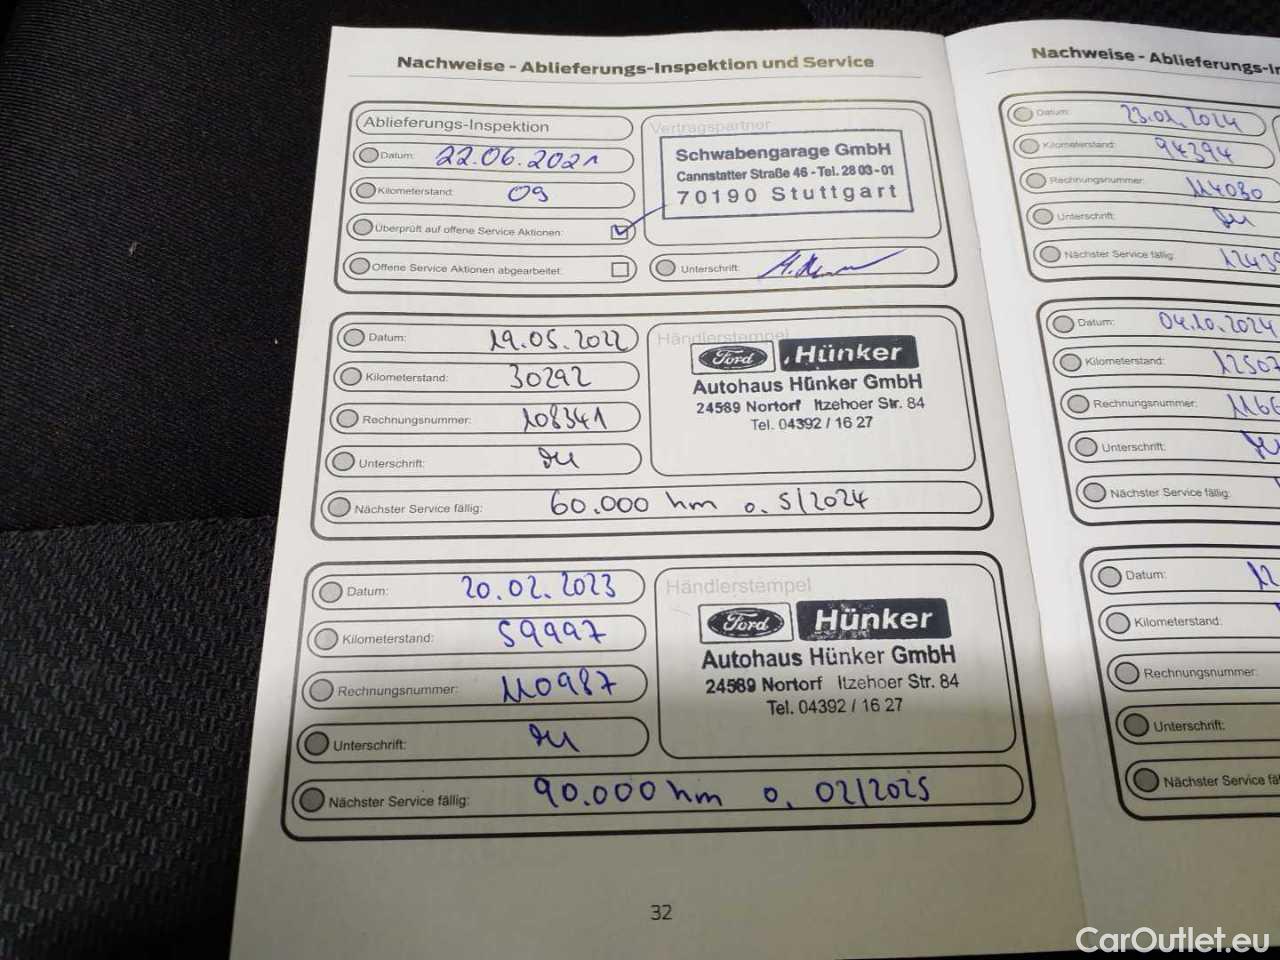 Nachweise - Ablieferungs-Inspektion und Service
Ablieferungs-Inspektion
Datum: 22.06.2021
Kilometerstand: 09
Überprüft auf offene Service Aktionen:
Offene Service Aktionen abgearbeitet:
Vertragspartner
Schwabengarage GmbH
Cannstatter Straße 46 - Tel. 28 03-01
70190 Stuttgart
Unterschrift:
Datum: 19.05.2022
Kilometerstand: 30292
Rechnungsnummer: 108341
Unterschrift:
Händlerstempel
Ford Hünker
Autohaus Hünker GmbH
24589 Nortorf Itzehoer Str. 84
Tel. 04392 / 16 27
Nächster Service fällig: 60.000 km o. 5/2024
Datum: 20.02.2023
Kilometerstand: 59997
Rechnungsnummer: 110987
Unterschrift:
Händlerstempel
Ford Hünker
Autohaus Hünker GmbH
24589 Nortorf Itzehoer Str. 84
Tel. 04392 / 16 27
Nächster Service fällig: 90.000 km o. 02/2025
32
Nachweise - Ablieferungs-In
Datum: 23.01.2024
Kilometerstand: 94394
Rechnungsnummer: 114030
Unterschrift:
Nächster Service fällig: 12439
Datum: 04.10.2024
Kilometerstand: 12507
Rechnungsnummer: 1166
Unterschrift:
Nächster Service fällig:
Datum: 12.
Kilometerstand:
Rechnungsnummer:
Unterschrift:
Nächster Service fä
CarOutlet.eu